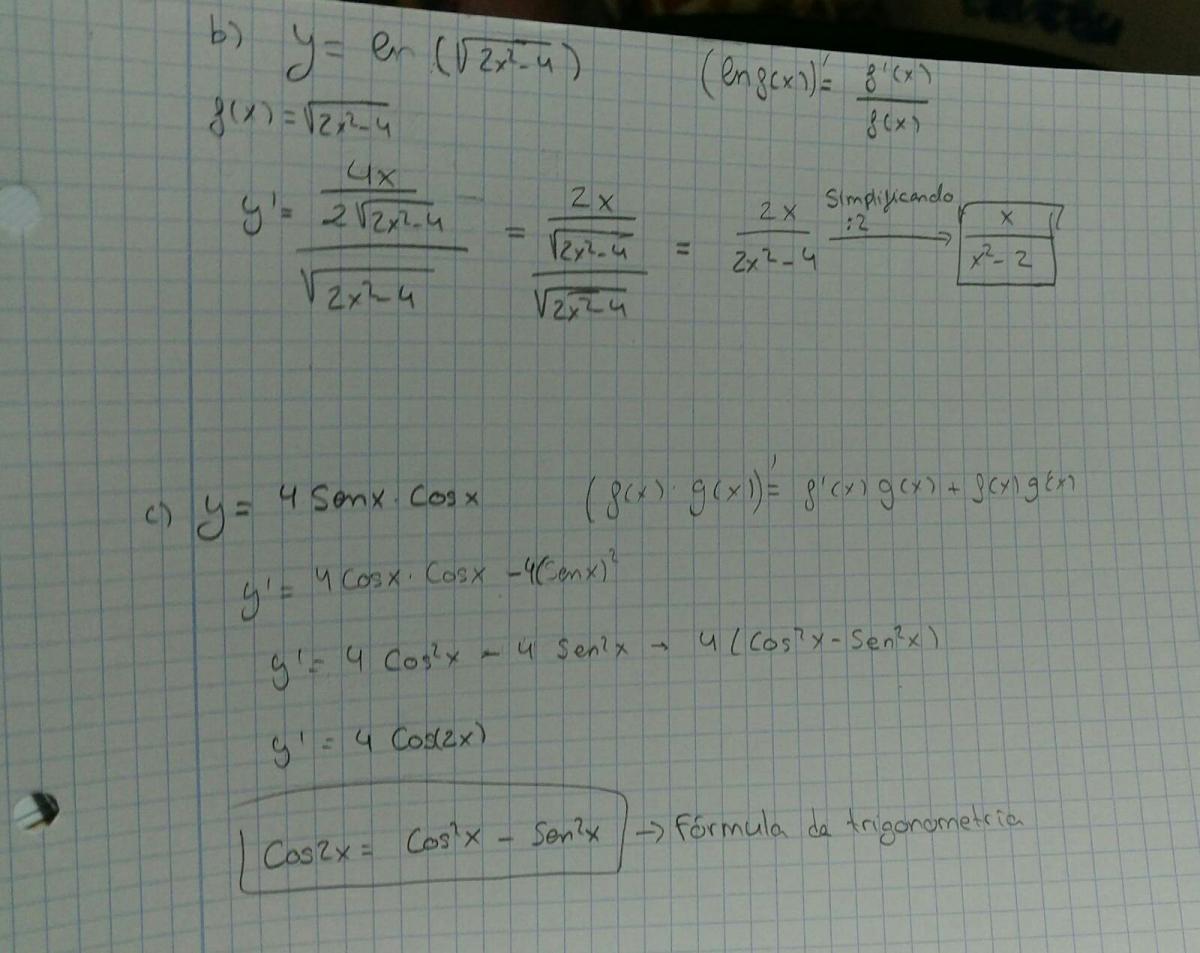 b) y = ln (√(2x²-4)) (ln f(x))' = f'(x)/f(x)
f(x) = √(2x²-4)
y' = (4x/(2√(2x²-4)))/√(2x²-4) = (2x/√(2x²-4))/√(2x²-4) = 2x/(2x²-4) Simplificando :2 → x/(x²-2)
c) y = 4 Senx · Cosx (f(x) · g(x))' = f'(x) g(x) + f(x) g'(x)
y' = 4 Cosx · Cosx - 4(Senx)²
y' = 4 Cos²x - 4 Sen²x → 4 (Cos²x - Sen²x)
y' = 4 Cos(2x)
Cos2x = Cos²x - Sen²x → Fórmula da trigonometria